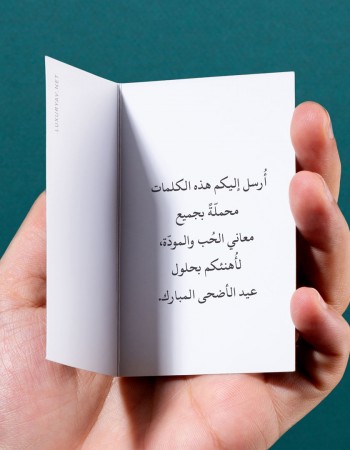 أُرسل إليكم هذه الكلمات
محملّةً بجميع
معاني الحُب والمودّة،
لأُهنئكم بحلول
عيد الأضحى المبارك.
LUXURYAY.NET